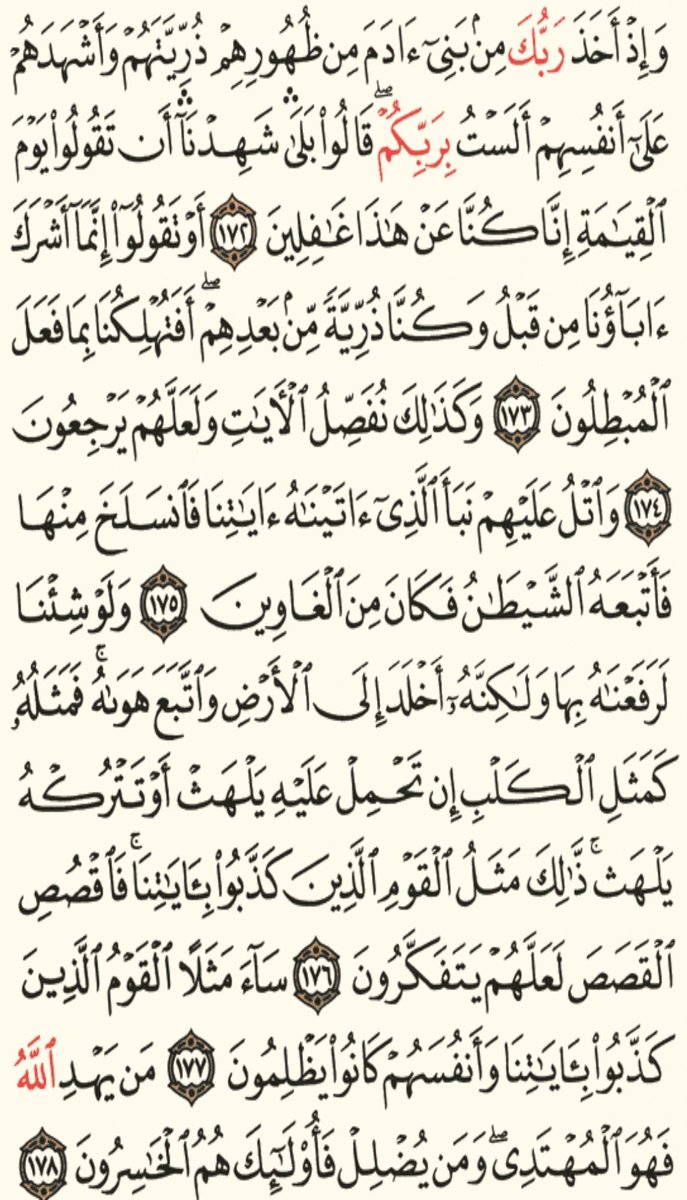 وَإِذْ أَخَذَ رَبُّكَ مِنۢ بَنِىٓ ءَادَمَ مِن ظُهُورِهِمْ ذُرِّيَّتَهُمْ وَأَشْهَدَهُمْ
عَلَىٰٓ أَنفُسِهِمْ أَلَسْتُ بِرَبِّكُمْ ۖ قَالُوا۟ بَلَىٰ ۛ شَهِدْنَآ ۛ أَن تَقُولُوا۟ يَوْمَ
ٱلْقِيَٰمَةِ إِنَّا كُنَّا عَنْ هَٰذَا غَٰفِلِينَ ١٧٢ أَوْ تَقُولُوٓا۟ إِنَّمَآ أَشْرَكَ
ءَابَآؤُنَا مِن قَبْلُ وَكُنَّا ذُرِّيَّةً مِّنۢ بَعْدِهِمْ ۖ أَفَتُهْلِكُنَا بِمَا فَعَلَ
ٱلْمُبْطِلُونَ ١٧٣ وَكَذَٰلِكَ نُفَصِّلُ ٱلْءَايَٰتِ وَلَعَلَّهُمْ يَرْجِعُونَ
١٧٤ وَٱتْلُ عَلَيْهِمْ نَبَأَ ٱلَّذِىٓ ءَاتَيْنَٰهُ ءَايَٰتِنَا فَٱنسَلَخَ مِنْهَا
فَأَتْبَعَهُ ٱلشَّيْطَٰنُ فَكَانَ مِنَ ٱلْغَاوِينَ ١٧٥ وَلَوْ شِئْنَا
لَرَفَعْنَٰهُ بِهَا وَلَٰكِنَّهُۥٓ أَخْلَدَ إِلَى ٱلْأَرْضِ وَٱتَّبَعَ هَوَىٰهُ ۚ فَمَثَلُهُۥ
كَمَثَلِ ٱلْكَلْبِ إِن تَحْمِلْ عَلَيْهِ يَلْهَثْ أَوْ تَتْرُكْهُ
يَلْهَث ۚ ذَّٰلِكَ مَثَلُ ٱلْقَوْمِ ٱلَّذِينَ كَذَّبُوا۟ بِـَٔايَٰتِنَا ۚ فَٱقْصُصِ
ٱلْقَصَصَ لَعَلَّهُمْ يَتَفَكَّرُونَ ١٧٦ سَآءَ مَثَلًا ٱلْقَوْمُ ٱلَّذِينَ
كَذَّبُوا۟ بِـَٔايَٰتِنَا وَأَنفُسَهُمْ كَانُوا۟ يَظْلِمُونَ ١٧٧ مَن يَهْدِ ٱللَّهُ
فَهُوَ ٱلْمُهْتَدِى ۖ وَمَن يُضْلِلْ فَأُو۟لَٰٓئِكَ هُمُ ٱلْخَٰسِرُونَ ١٧٨